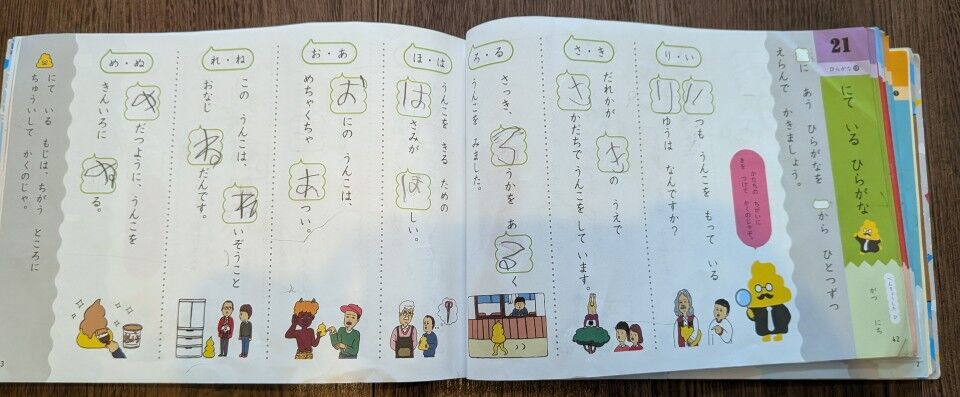 21
ひらがな
にて いる ひらがな
がつ にち
42
に あう ひらがなを から ひとつずつ
えらんで かきましょう。
かたちの ちがいに
きを つけて かくのじゃぞ。
り・い
いつも うんこを もって いる
りゆうは なんですか?
さ・き
だれかが きの うえで
さかだちで うんこを して います。
ろ・る
さっき、ろうかを あるく
うんこを みました。
ほ・は
うんこを きる ための
はさみが ほしい。
お・あ
おにの うんこは、
めちゃくちゃ あつい。
れ・ね
この うんこは、れいぞうこと
おなじ ねだんです。
め・ぬ
めだつように、うんこを
きんいろに ぬる。
にて いる もじは、ちがう ところに
ちゅういして かくのじゃ。